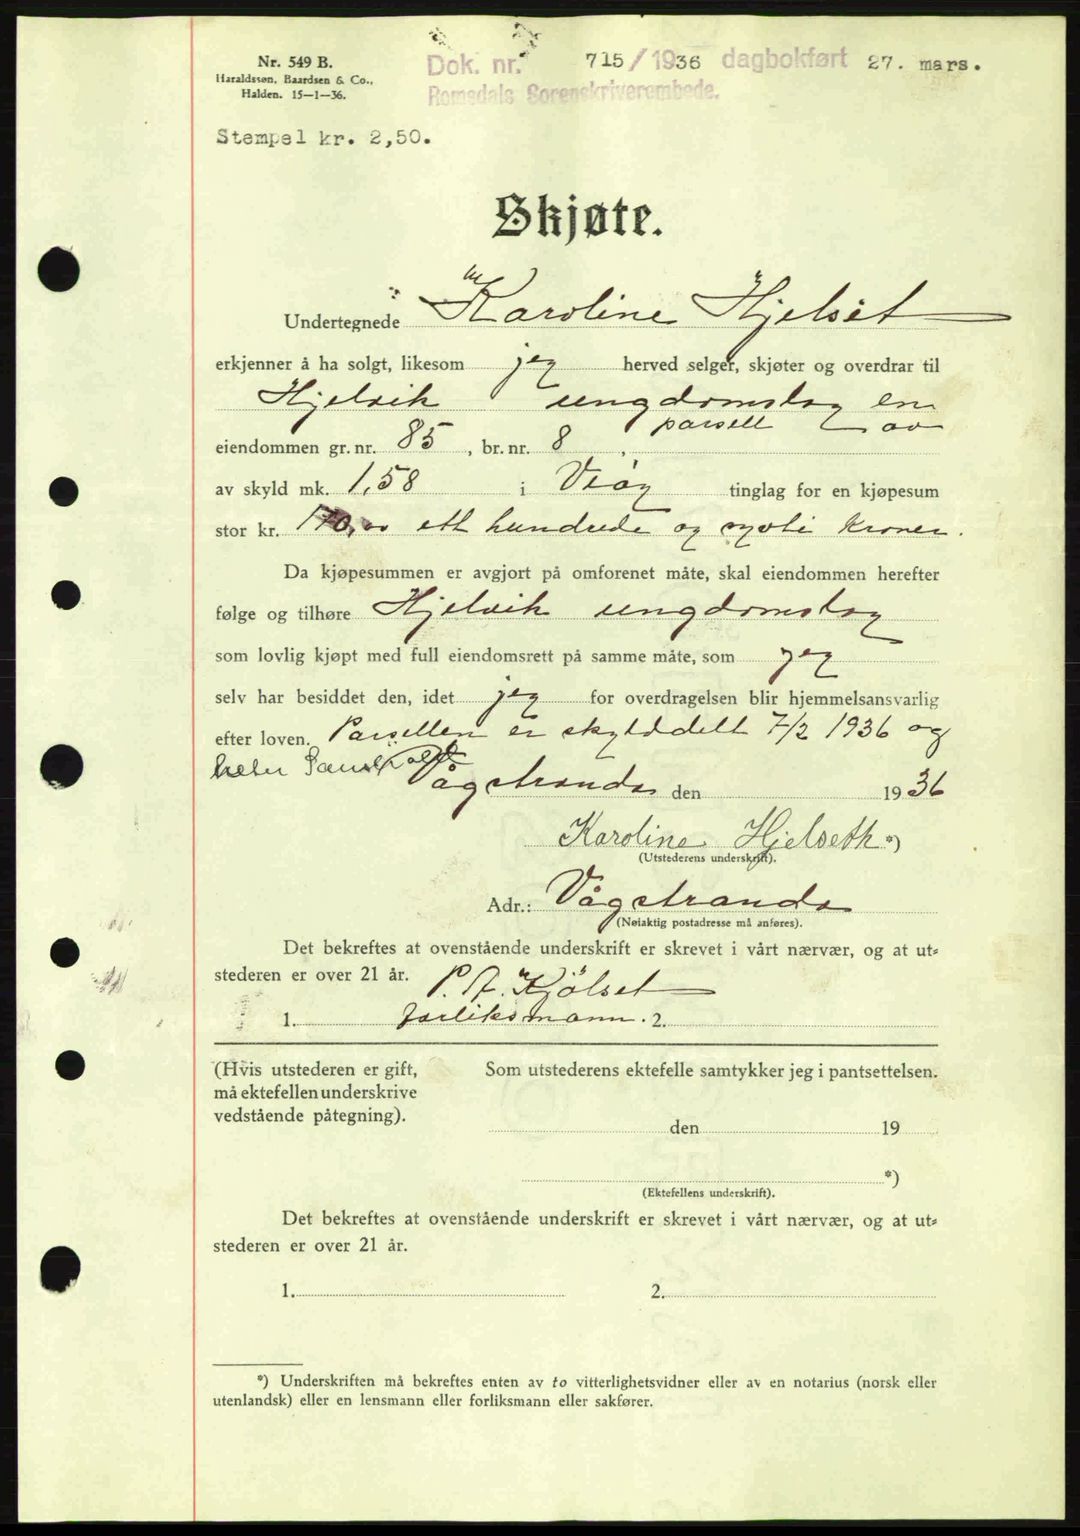 Nr. 549 B.
Haraldssøn, Baardsen & Co.,
Halden. 15—1—36.
Dok. nr. 715/1936 dagbokført 27. mars.
Romsdals Sorenskriverembede.
Stempel kr. 2,50.
Skjøte.
Undertegnede Karoline Hjelset
erkjenner å ha solgt, likesom jeg herved selger, skjøter og overdrar til
Hjelvik ungdomslag en
parsell av
eiendommen gr. nr. 85, br. nr. 8,
av skyld mk. 1,58 i Veøy tinglag for en kjøpesum
stor kr. 170,00 ett hundrede og sytti kroner.
Da kjøpesummen er avgjort på omforenet måte, skal eiendommen herefter
følge og tilhøre Hjelvik ungdomslag
som lovlig kjøpt med full eiendomsrett på samme måte, som jeg
selv har besiddet den, idet jeg for overdragelsen blir hjemmelsansvarlig
efter loven. Parsellen er skylddelt 7/2 1936 og
heter
Vågstranda den 1936
Karoline Hjelseth *)
(Utstederens underskrift).
Adr.: Vågstranda
(Nøiaktig postadresse må anføres).
Det bekreftes at ovenstående underskrift er skrevet i vårt nærvær, og at ut-
stederen er over 21 år. P. A. Kjølset
1. forliksmann. 2.
(Hvis utstederen er gift,
må ektefellen underskrive
vedstående påtegning).
Som utstederens ektefelle samtykker jeg i pantsettelsen.
den 19
*)
(Ektefellens underskrift).
Det bekreftes at ovenstående underskrift er skrevet i vårt nærvær, og at ut-
stederen er over 21 år.
1. 2.
*) Underskriften må bekreftes enten av to vitterlighetsvidner eller av en notarius (norsk eller
utenlandsk) eller en lensmann eller forliksmann eller sakfører.